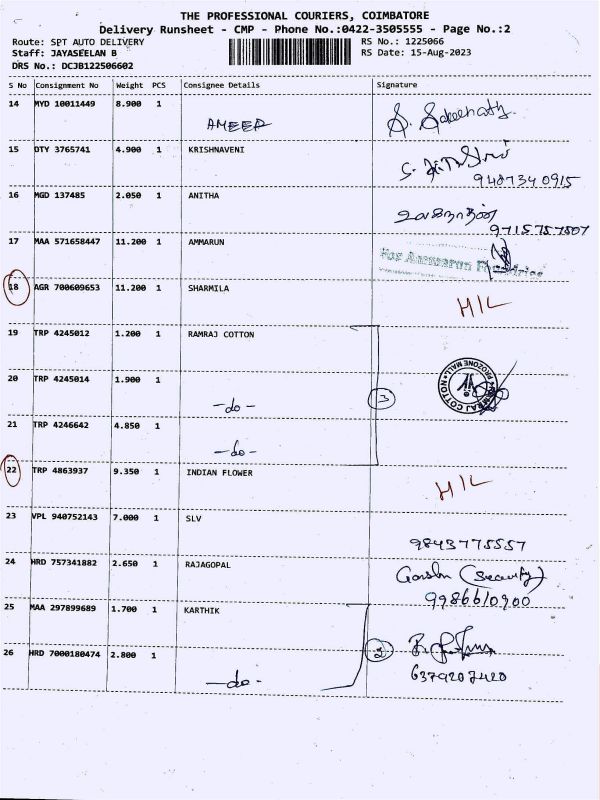 THE PROFESSIONAL COURIERS, COIMBATORE
Delivery Runsheet - CMP - Phone No.:0422-3505555 - Page No.:2
Route: SPT AUTO DELIVERY RS No.: 1225066
Staff: JAYASEELAN B RS Date: 15-Aug-2023
DRS No.: DCJB122506602
S No Consignment No Weight PCS Consignee Details Signature
14 MYD 10011449 8.900 1 AMEER
15 DTY 3765741 4.900 1 KRISHNAVENI
9487340915
16 MGD 137485 2.050 1 ANITHA
9715757507
17 MAA 571658447 11.200 1 AMMARUN
For Ammarun
18 AGR 700609653 11.200 1 SHARMILA
H/L
19 TRP 4245012 1.200 1 RAMRAJ COTTON
20 TRP 4245014 1.900 1 -do- 3
RAMRAJ COTTON PROZONE MALL
21 TRP 4246642 4.850 1 -do-
22 TRP 4863937 9.350 1 INDIAN FLOWER
H/L
23 VPL 940752143 7.000 1 SLV
9843775557
24 HRD 757341882 2.650 1 RAJAGOPAL
(Security)
9986610900
25 MAA 297899689 1.700 1 KARTHIK
26 HRD 7000180474 2.800 1 -do- 2
6379207420